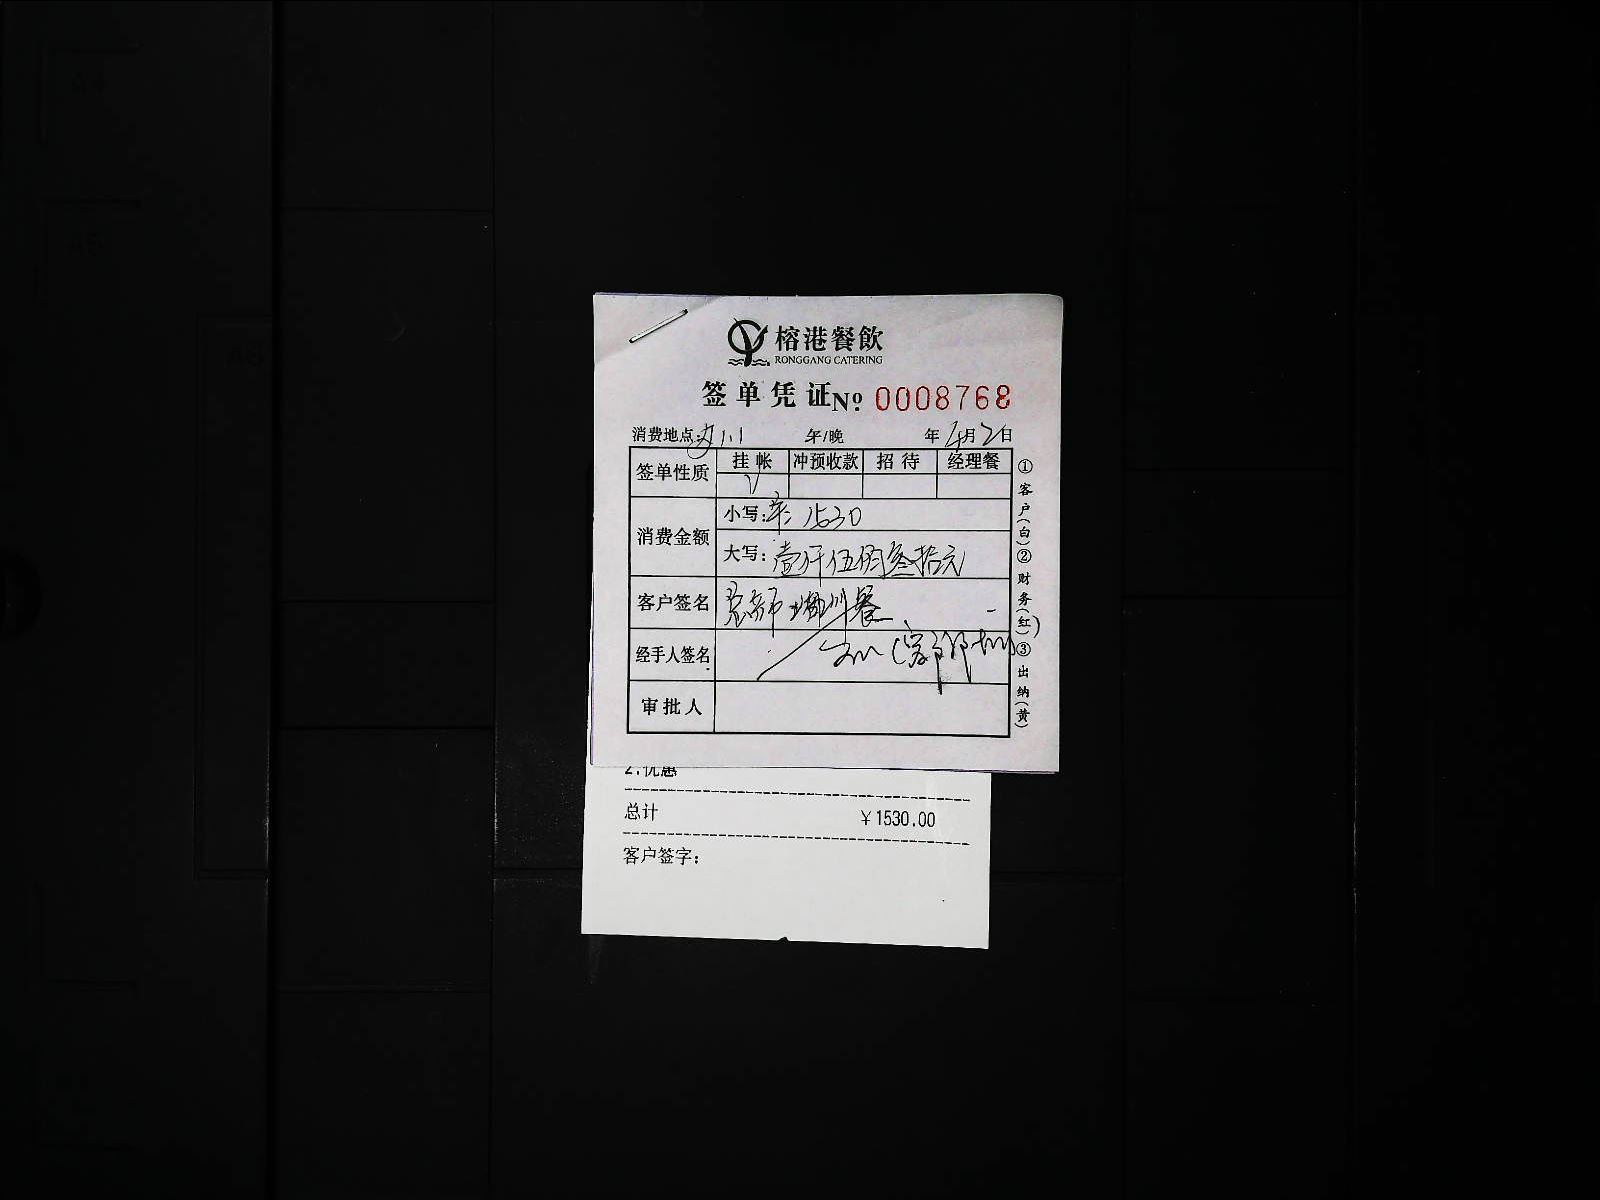 榕港餐飲
RONGGANG CATERING
签单凭证 № 0008768
消费地点: 午/晚 年 4月2日
签单性质 挂帐 冲预收款 招待 经理餐
√
消费金额 小写: 1530
大写: 壹仟伍佰叁拾元
客户签名 培训餐
经手人签名
审批人
①客户(白)②财务(红)③出纳(黄)
2.优惠
总计 ￥1530.00
客户签字: